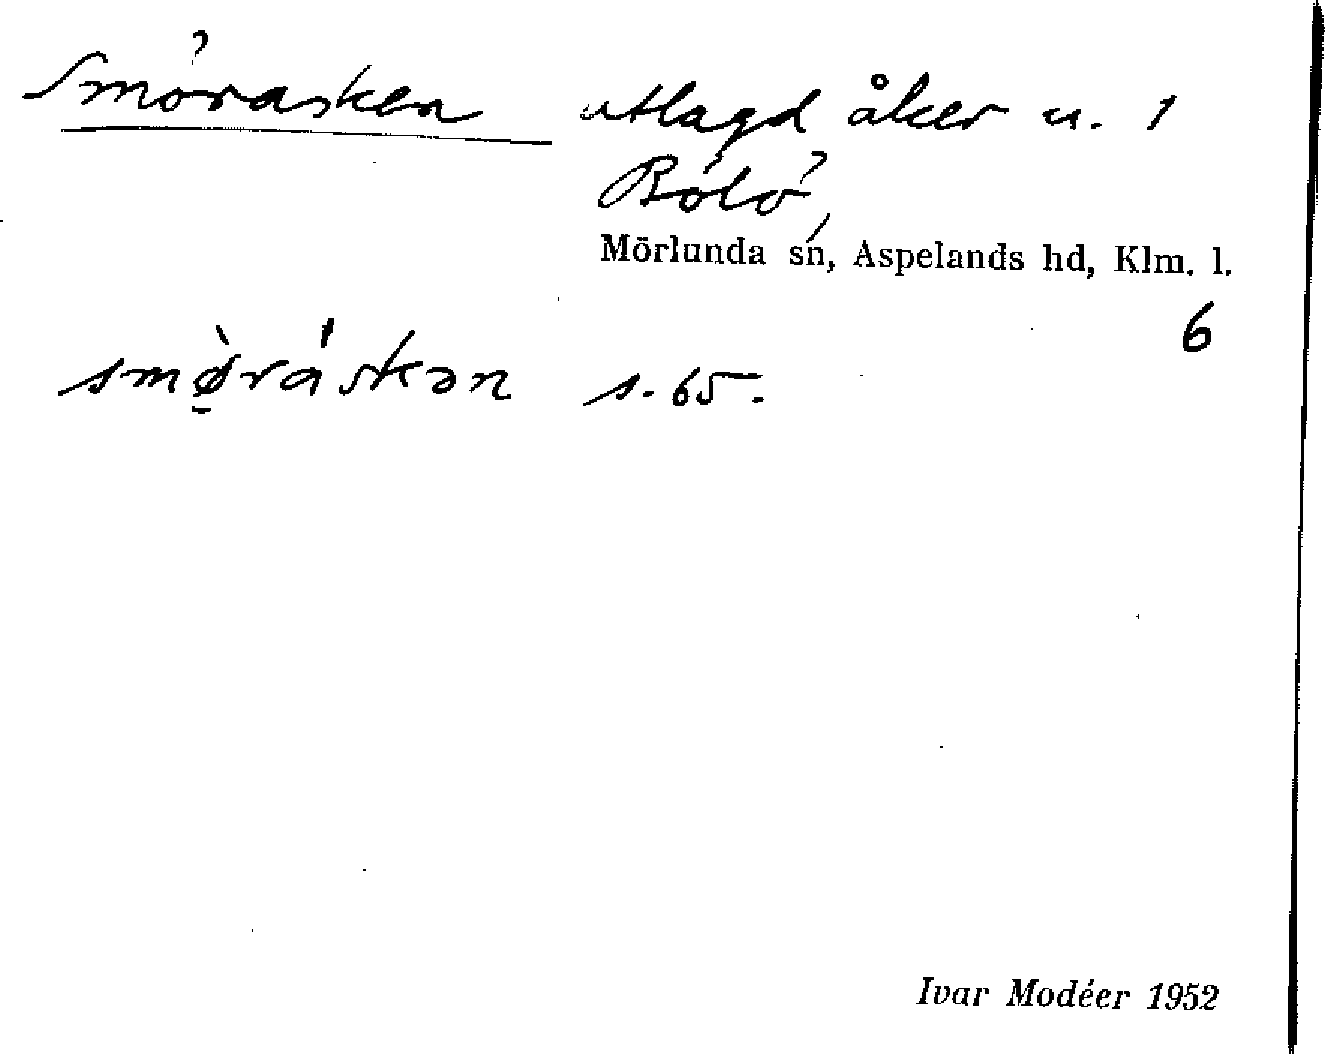 Smörasken utlagd åker u. 1
Bölö,
Mörlunda sn, Aspelands hd, Klm. l.
6
smø̀ráskən s. 65.
Ivar Modéer 1952